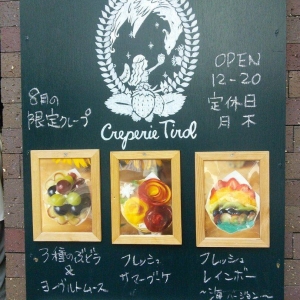 Creperie Tirol
OPEN
12-20
定休日
月 木
8月の
限定クレープ
3種のぶどう
&
ヨーグルトムース
フレッシュ
サマーブーケ
フレッシュ
レインボー
〜海バージョン〜